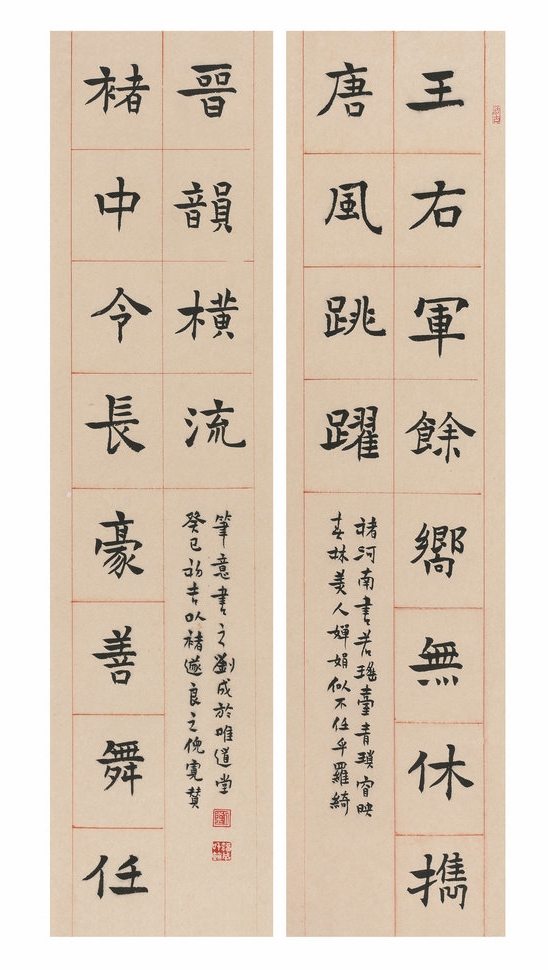 王右軍餘嚮無休擕
唐風跳躍
褚河南書若瑤臺青瑣窅映
春林美人嬋娟似不任乎羅綺
褚中令長豪善舞任
晉韻橫流
癸巳初吉以褚遂良之倪寬贊
筆意書之劉成於唯道堂